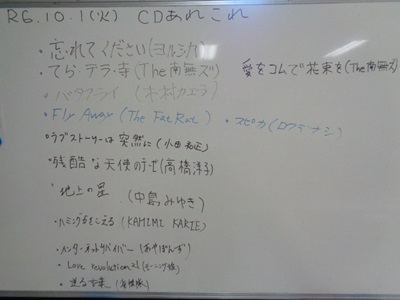 R6.10.1(火) CDあれこれ
・忘れてください(ヨルシカ)
・てら・テラ・寺(The南無ズ)
愛をコムで花束を(The南無ズ)
・バタフライ(木村カエラ)
・Fly Away (The Fat Rat)
・スピカ(ロクデナシ)
・ラブストーリーは突然に(小田和正)
・残酷な天使のテーゼ(高橋洋子)
・地上の星 (中島みゆき)
・ハミングがきこえる (KAHIMI KARIE)
・インターネットサバイバー(あやぱんず)
・Love revolution 21(モーニング娘)